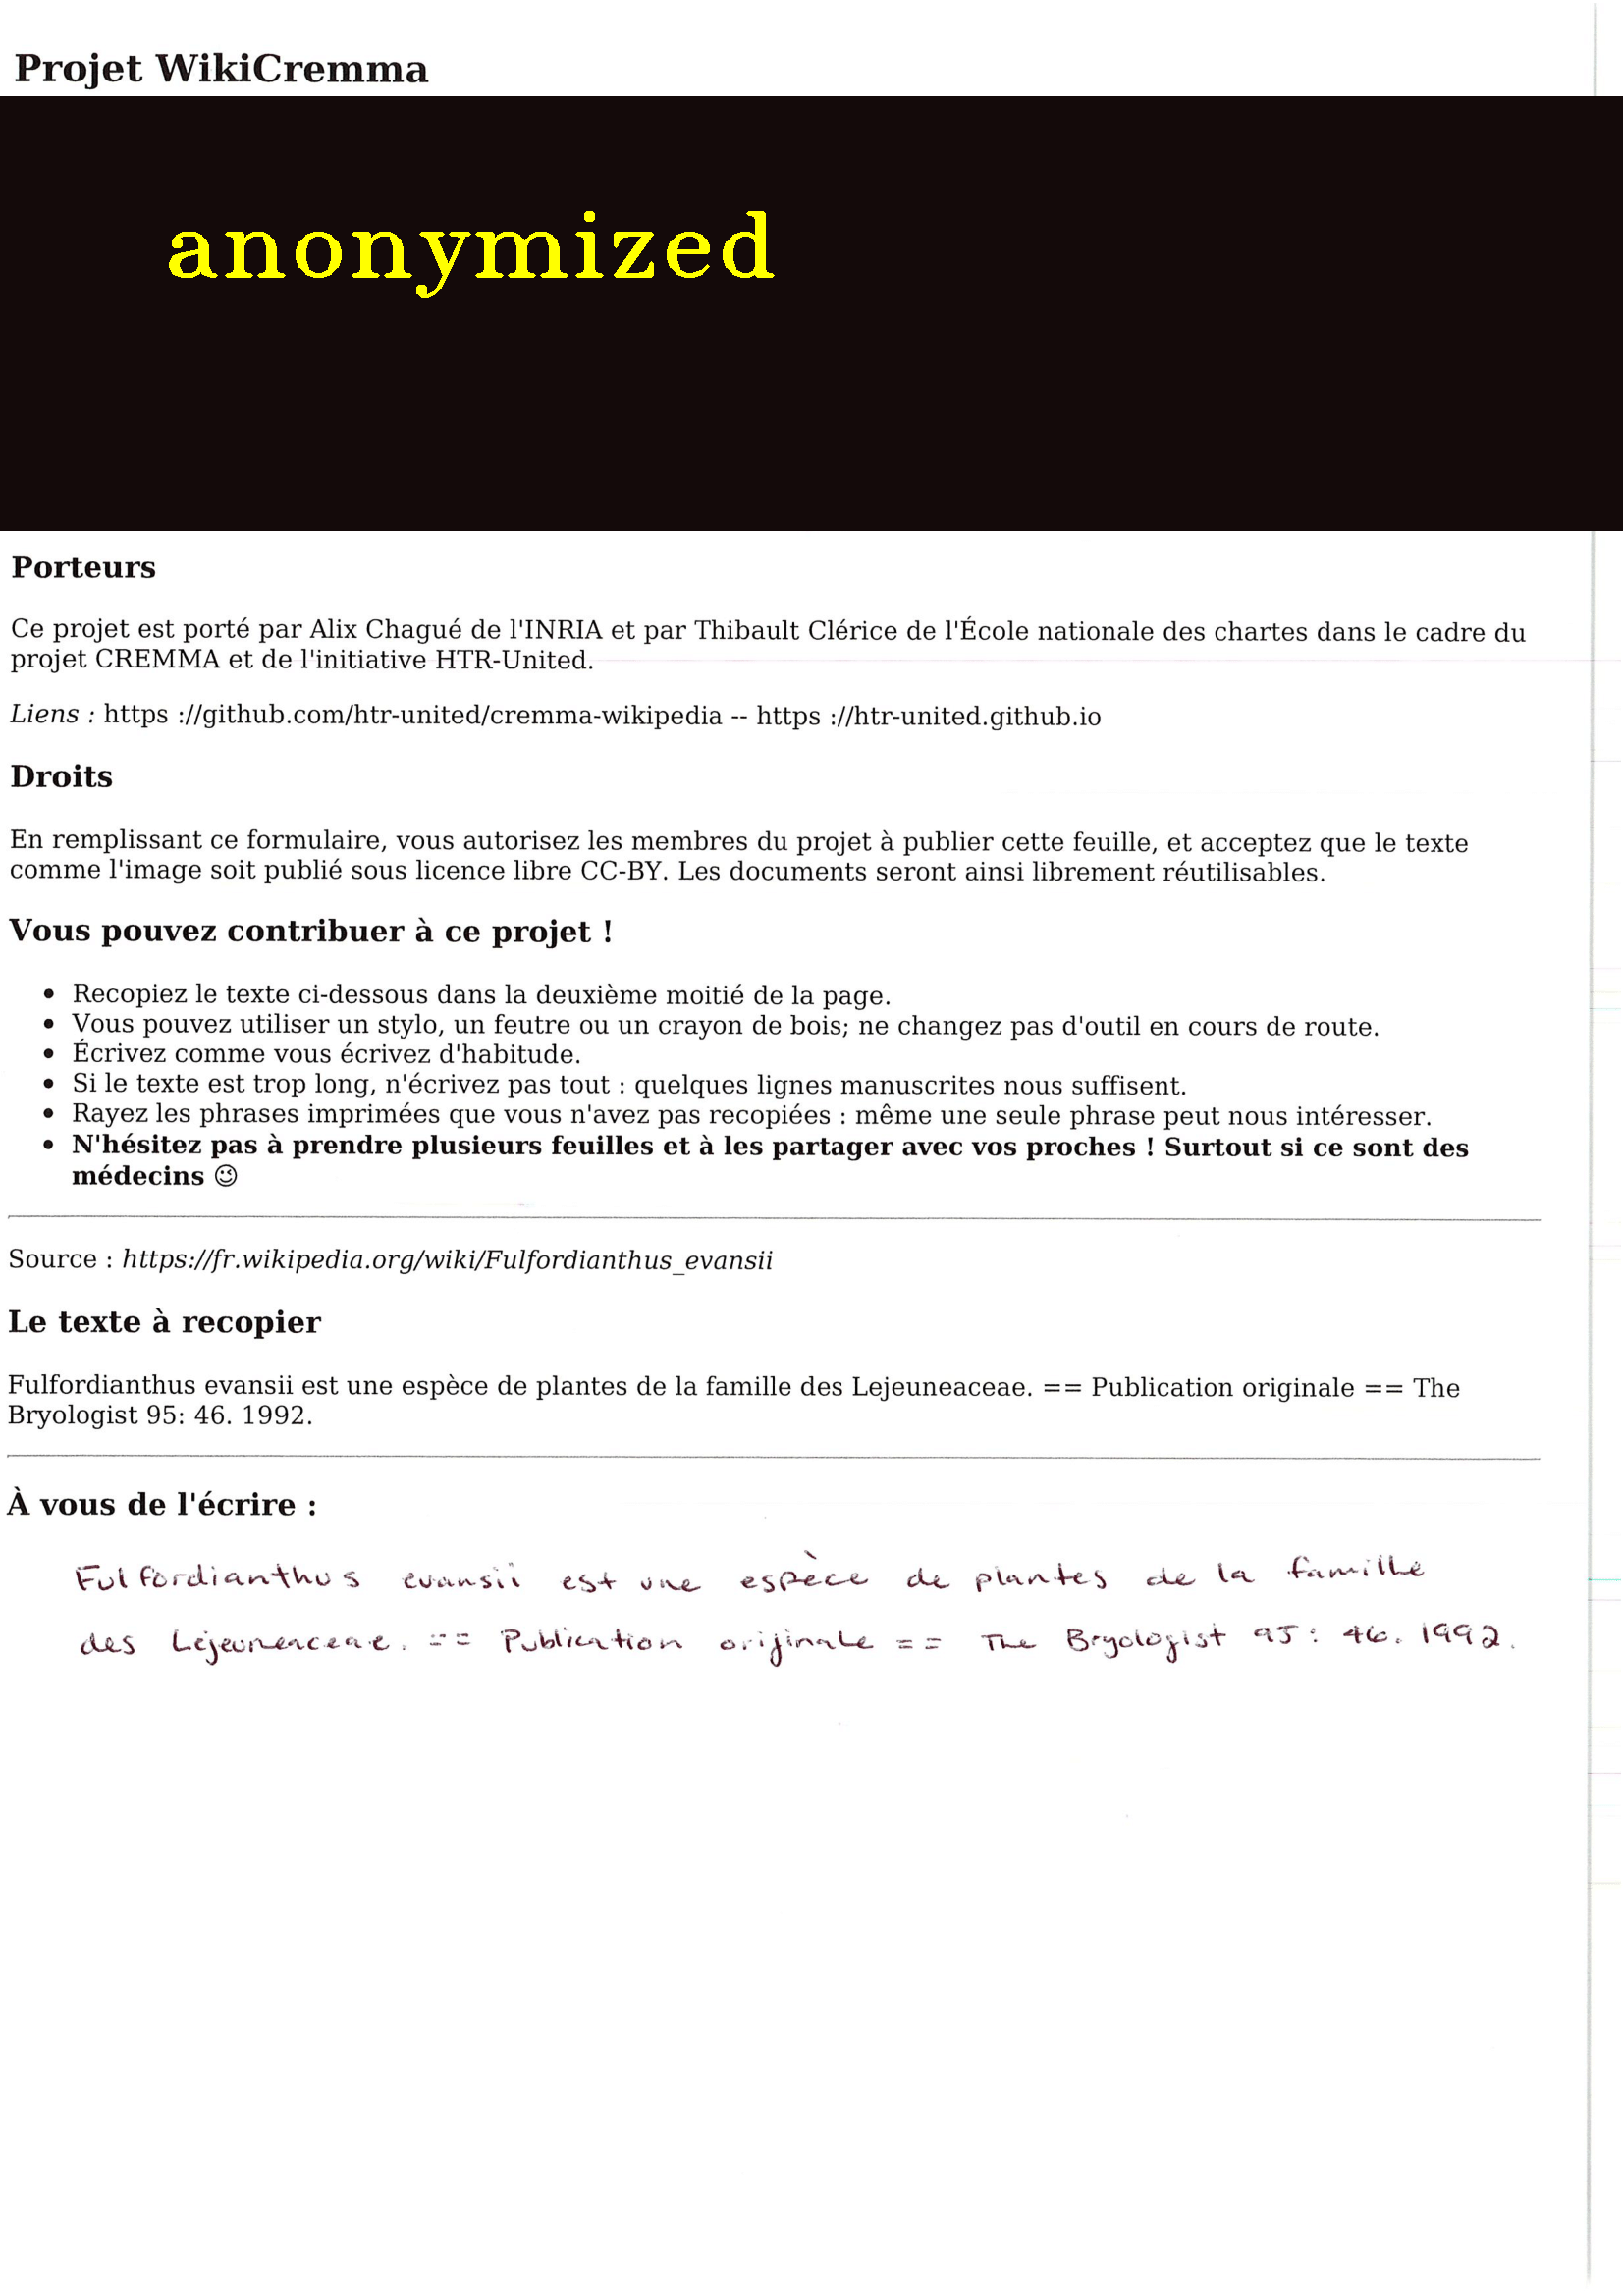 Projet WikiCremma
anonymized
Porteurs
Ce projet est porté par Alix Chagué de l'INRIA et par Thibault Clérice de l'École nationale des chartes dans le cadre du
projet CREMMA et de l'initiative HTR-United.
Liens : https ://github.com/htr-united/cremma-wikipedia -- https ://htr-united.github.io
Droits
En remplissant ce formulaire, vous autorisez les membres du projet à publier cette feuille, et acceptez que le texte
comme l'image soit publié sous licence libre CC-BY. Les documents seront ainsi librement réutilisables.
Vous pouvez contribuer à ce projet !
• Recopiez le texte ci-dessous dans la deuxième moitié de la page.
• Vous pouvez utiliser un stylo, un feutre ou un crayon de bois; ne changez pas d'outil en cours de route.
• Écrivez comme vous écrivez d'habitude.
• Si le texte est trop long, n'écrivez pas tout : quelques lignes manuscrites nous suffisent.
• Rayez les phrases imprimées que vous n'avez pas recopiées : même une seule phrase peut nous intéresser.
• N'hésitez pas à prendre plusieurs feuilles et à les partager avec vos proches ! Surtout si ce sont des
médecins 😉
Source : https://fr.wikipedia.org/wiki/Fulfordianthus_evansii
Le texte à recopier
Fulfordianthus evansii est une espèce de plantes de la famille des Lejeuneaceae. == Publication originale == The
Bryologist 95: 46. 1992.
À vous de l'écrire :
Fulfordianthus evansii est une espèce de plantes de la famille
des Lejeuneaceae. == Publication originale == The Bryologist 95: 46. 1992.